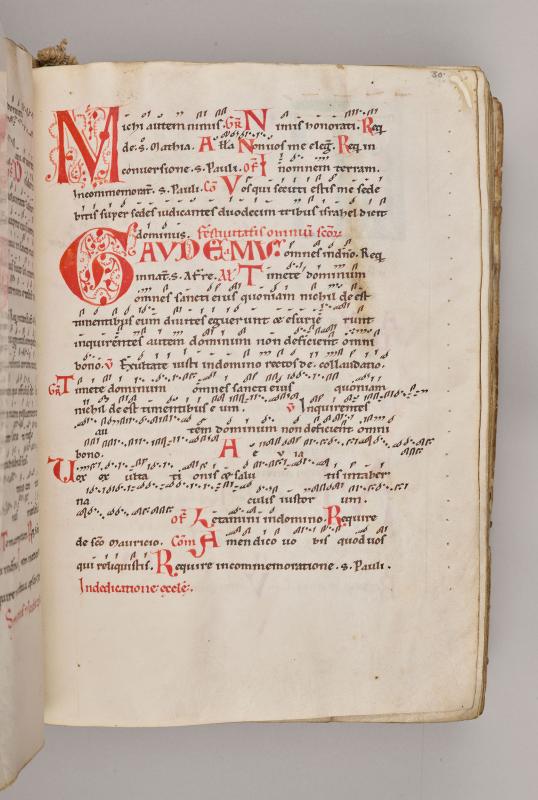 30.
Michi autem nimis. Gr. Nimis honorati. Req.
de. s. Mathia. Alla Non vos me eleg. Req. in
conversione. s. Pauli. Of. In omnem terram.
Incommemorat. s. Pauli. Co Vos qui secuti estis me sede
bitis super sedes iudicantes duodecim tribus israhel dicit
dominus. Festivitatis omniu scor.
GAVDEAMVS omnes indno. Req.
innat. s. Afre. Al Timete dominum
omnes sancti eius quoniam nichil de est
timentibus eum divites eguerunt & esurie runt
inquirentes autem dominum non deficient omni
bono. V Exultate iusti indomino rectos de. collaudatio.
Gr Timete dominum omnes sancti eius quoniam
nichil de est timentibus e um. V Inquirentes
au tem dominum non deficient omni
bono. A e v ia
Vox ex ulta ti onis & salu tis intaber
na culis iustor um.
Of. Letamini indomino. Require
de sco mauricio. Com Amen dico vo bis quod vos
qui reliquistis. Require incommemoratione. s. Pauli.
Indedicatione eccle.